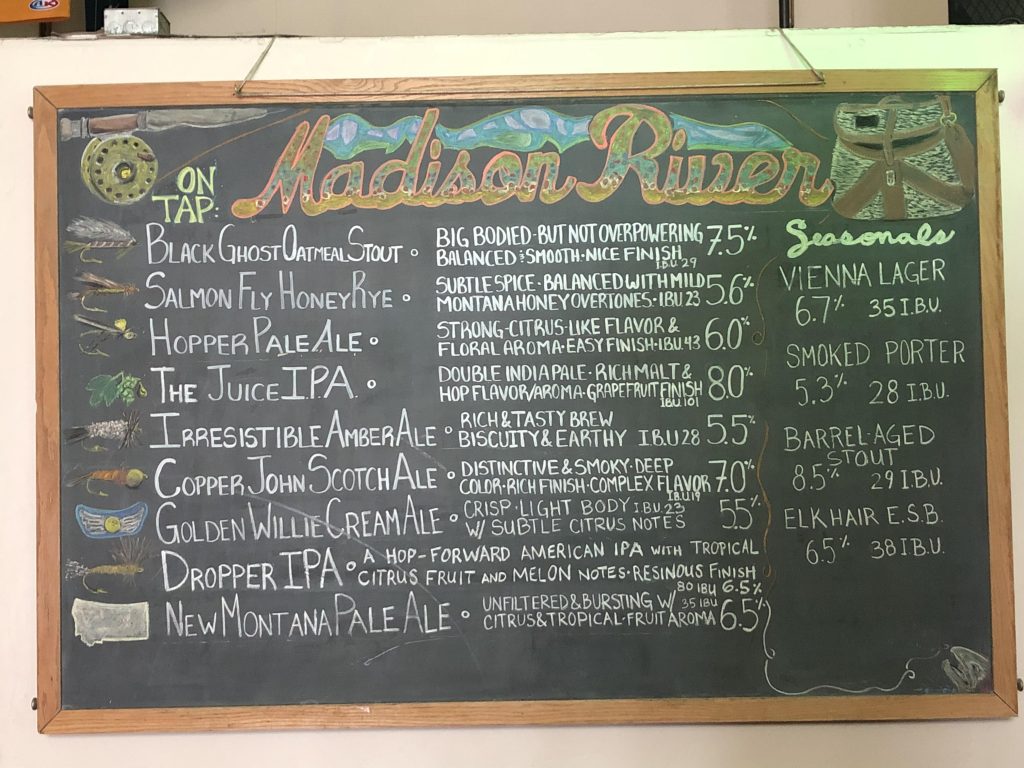 Madison River
ON
TAP:
BLACK GHOST OATMEAL STOUT • BIG BODIED · BUT NOT OVERPOWERING 7.5%
BALANCED & SMOOTH · NICE FINISH
I.B.U 29
SALMON FLY HONEY RYE • SUBTLE SPICE · BALANCED WITH MILD 5.6%
MONTANA HONEY OVERTONES · IBU 23
HOPPER PALE ALE • STRONG · CITRUS · LIKE FLAVOR & 6.0%
FLORAL AROMA · EASY FINISH · IBU 43
THE JUICE I.P.A. • DOUBLE INDIA PALE · RICH MALT & 8.0%
HOP FLAVOR/AROMA · GRAPEFRUIT FINISH
I.B.U 101
IRRESISTIBLE AMBER ALE • RICH & TASTY BREW 5.5%
BISCUITY & EARTHY I.B.U 28
COPPER JOHN SCOTCH ALE • DISTINCTIVE & SMOKY · DEEP 7.0%
COLOR · RICH FINISH · COMPLEX FLAVOR
I.B.U 19
GOLDEN WILLIE CREAM ALE • CRISP · LIGHT BODY I.B.U 23 5.5%
W/ SUBTLE CITRUS NOTES
DROPPER IPA • A HOP-FORWARD AMERICAN IPA WITH TROPICAL
CITRUS FRUIT AND MELON NOTES · RESINOUS FINISH
80 IBU 6.5%
NEW MONTANA PALE ALE • UNFILTERED & BURSTING W/ 35 IBU 6.5%
CITRUS & TROPICAL · FRUIT AROMA
Seasonals
VIENNA LAGER
6.7% 35 I.B.U.
SMOKED PORTER
5.3% 28 I.B.U.
BARREL-AGED
STOUT
8.5% 29 I.B.U.
ELKHAIR E.S.B.
6.5% 38 I.B.U.